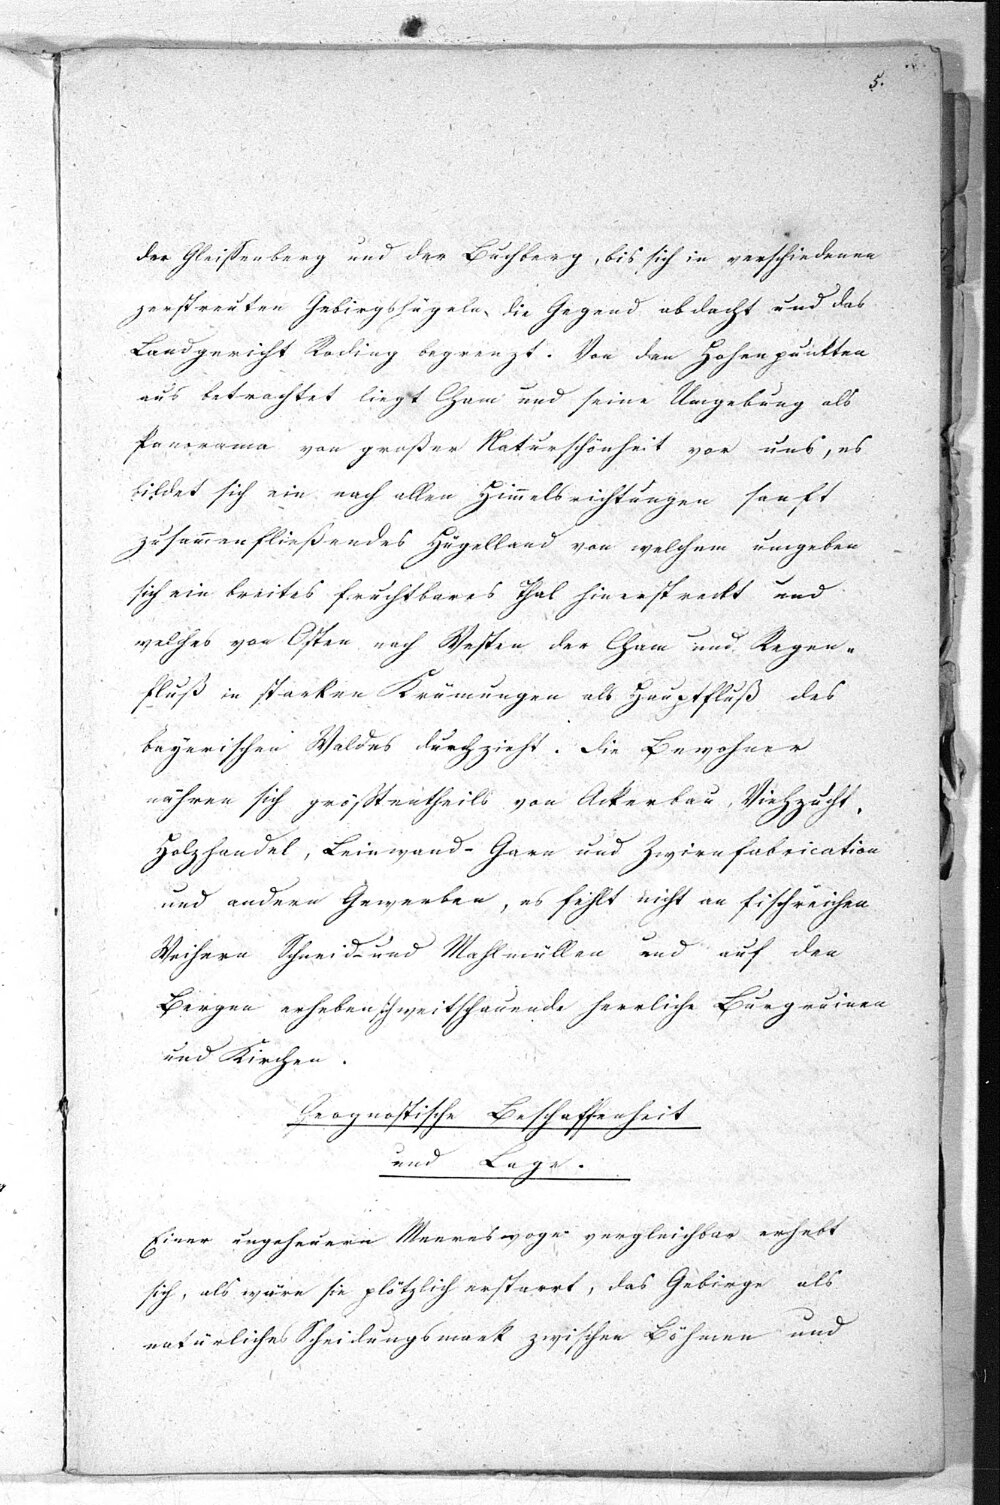 5.
der Gleissenberg und der Buchberg, bis sich in verschiedenen
zerstreuten Gebirgshügeln die Gegend abdacht und das
Landgericht Roding begrenzt. Von den Hohenpunkten
aus betrachtet liegt Cham und seine Umgebung als
Panorama von großer Naturschönheit vor uns, es
bildet sich ein nach allen Him̅elsrichtungen sanft
zusam̅enfließendes Hügelland von welchem umgeben
sich ein breites fruchtbares Thal hinerstreckt und
welches von Osten nach Westen der Cham und Regen-
fluß in starken Krüm̅ungen als Hauptfluß des
bayerischen Waldes durchzieht. Die Bewohner
nähren sich größtentheils von Ackerbau, Viehzucht,
Holzhandel, Leinwand- Garn und Zwirnfabrication
und andern Gewerben, es fehlt nicht an fischreichen
Weihern Schneid- und Mahlmüllen und auf den
Bergen erheben sich weitschauende herrliche Burgruinen
und Kirchen.
Geognostische Beschaffenheit
und Lage.
Einer ungeheuern Meereswoge vergleichbar erhebt
sich, als wäre sie plötzlich erstarrt, das Gebirge als
natürliches Scheidungsmark zwischen Böhmen und